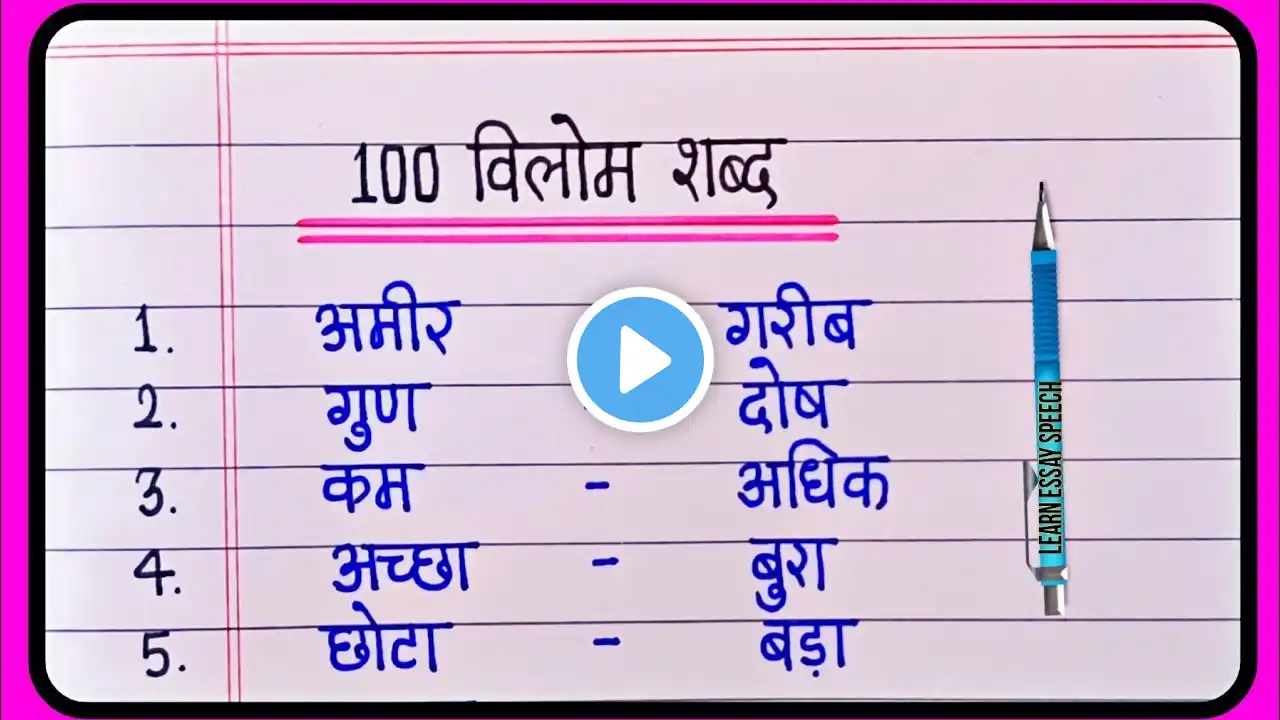 100 विलोम शब्द
1. अमीर गरीब
2. गुण - दोष
3. कम - अधिक
4. अच्छा - बुरा
5. छोटा - बड़ा
LEARN ESSAY SPEECH